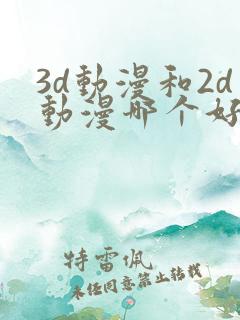 3d動漫和2d
動漫哪个好
特雷佩
未经同意禁止转载